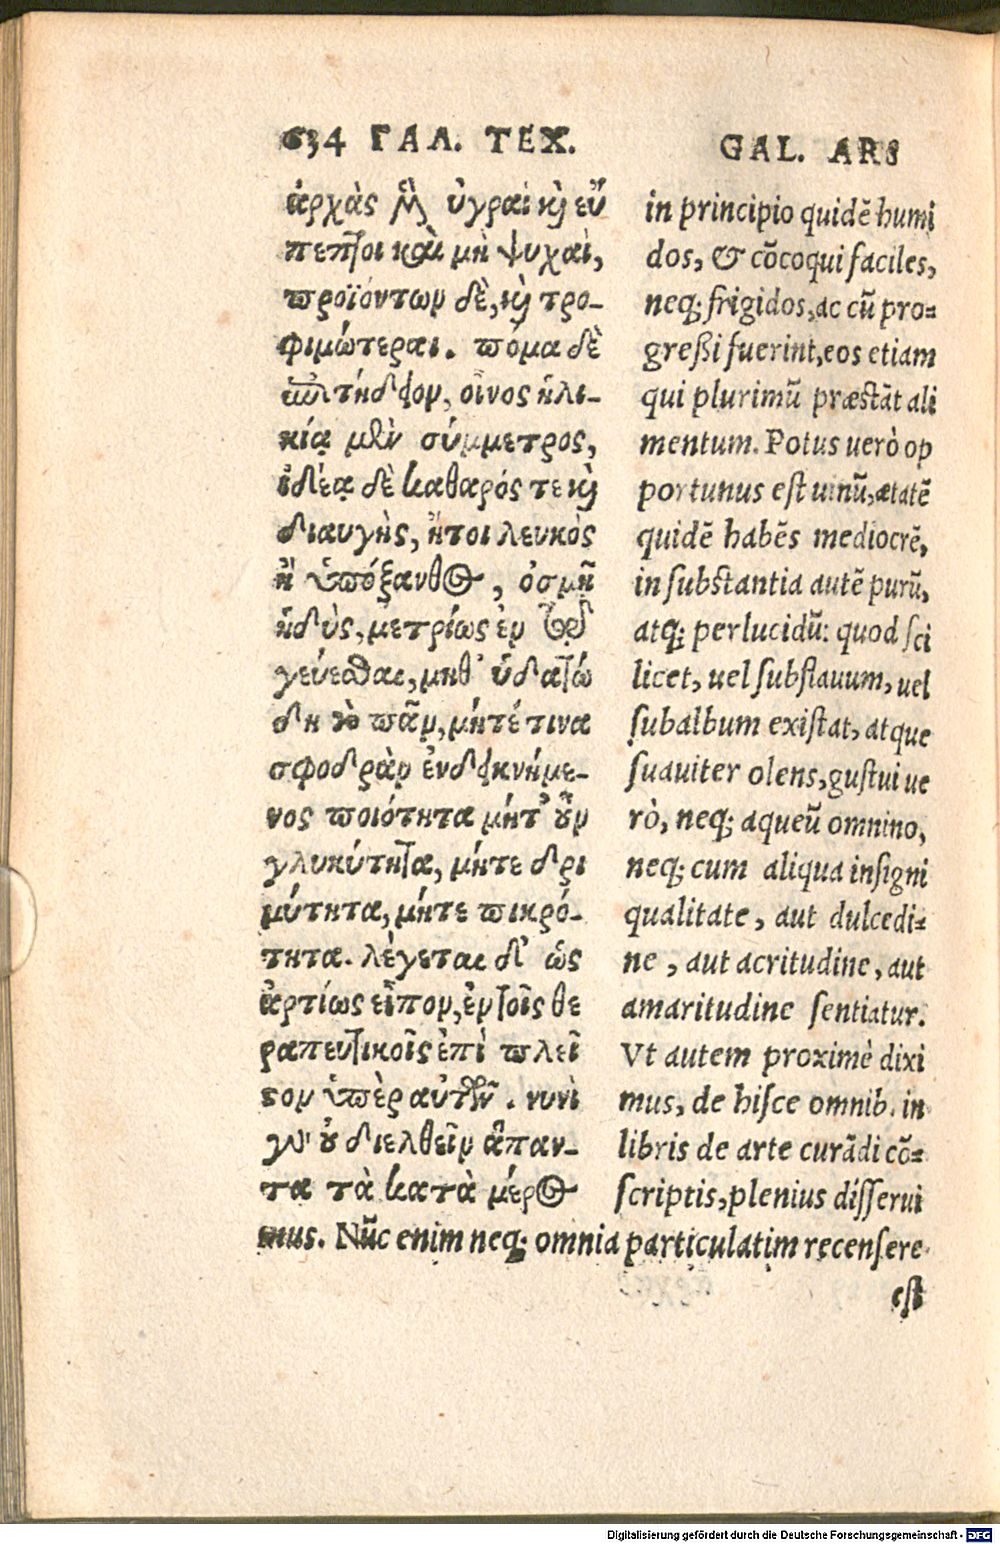 634 ΓΑΛ. ΤΕΧ.
ἀρχὰς μὲν ὑγραὶ καὶ εὔ
πεπτοι καὶ μὴ ψυχαὶ,
προϊόντων δὲ, καὶ τρο-
φιμώτεραι. πόμα δὲ
ἐπιτήδειον, οἶνος ἡλι-
κίᾳ μὲν σύμμετρος,
ἰδέᾳ δὲ καθαρός τε καὶ
διαυγὴς, ἤτοι λευκὸς
ἢ ὑπόξανθος, ὀσμῇ
ἡδὺς, μετρίως ἐν τῷ
γεύεσθαι, μηθ' ὑδατώ
δη τὸ πᾶν, μήτέ τινα
σφοδρὰν ἐνδεικνήμε-
νος ποιότητα μήτ' οὖν
γλυκύτητα, μήτε δρι
μύτητα, μήτε πικρό-
τητα. λέγεται δ' ὡς
ἀρτίως εἶπον, ἐν τοῖς θε
ραπευτικοῖς ἐπὶ πλεῖ
στον ὑπὲρ αὐτῶν. νυνὶ
γὰρ οὐ διελθεῖν ἅπαν-
τα τὰ κατὰ μέρος
GAL. ARS
in principio quidē humi
dos, & cōcoqui faciles,
neq; frigidos, ac cū pro-
greßi fuerint, eos etiam
qui plurimū præstāt ali
mentum. Potus uerò op
portunus est uinū, ætatē
quidē habēs mediocrē,
in substantia autē purū,
atq; perlucidū: quod sci
licet, uel subflauum, uel
subalbum existat, atque
suauiter olens, gustui ue
rò, neq; aqueū omnino,
neq; cum aliqua insigni
qualitate, aut dulcedi-
ne, aut acritudine, aut
amaritudine sentiatur.
Vt autem proximè dixi
mus, de hisce omnib. in
libris de arte curādi cō-
scriptis, plenius disserui
mus. Nūc enim neq; omnia particulatim recensere
est
Digitalisierung gefördert durch die Deutsche Forschungsgemeinschaft - DFG